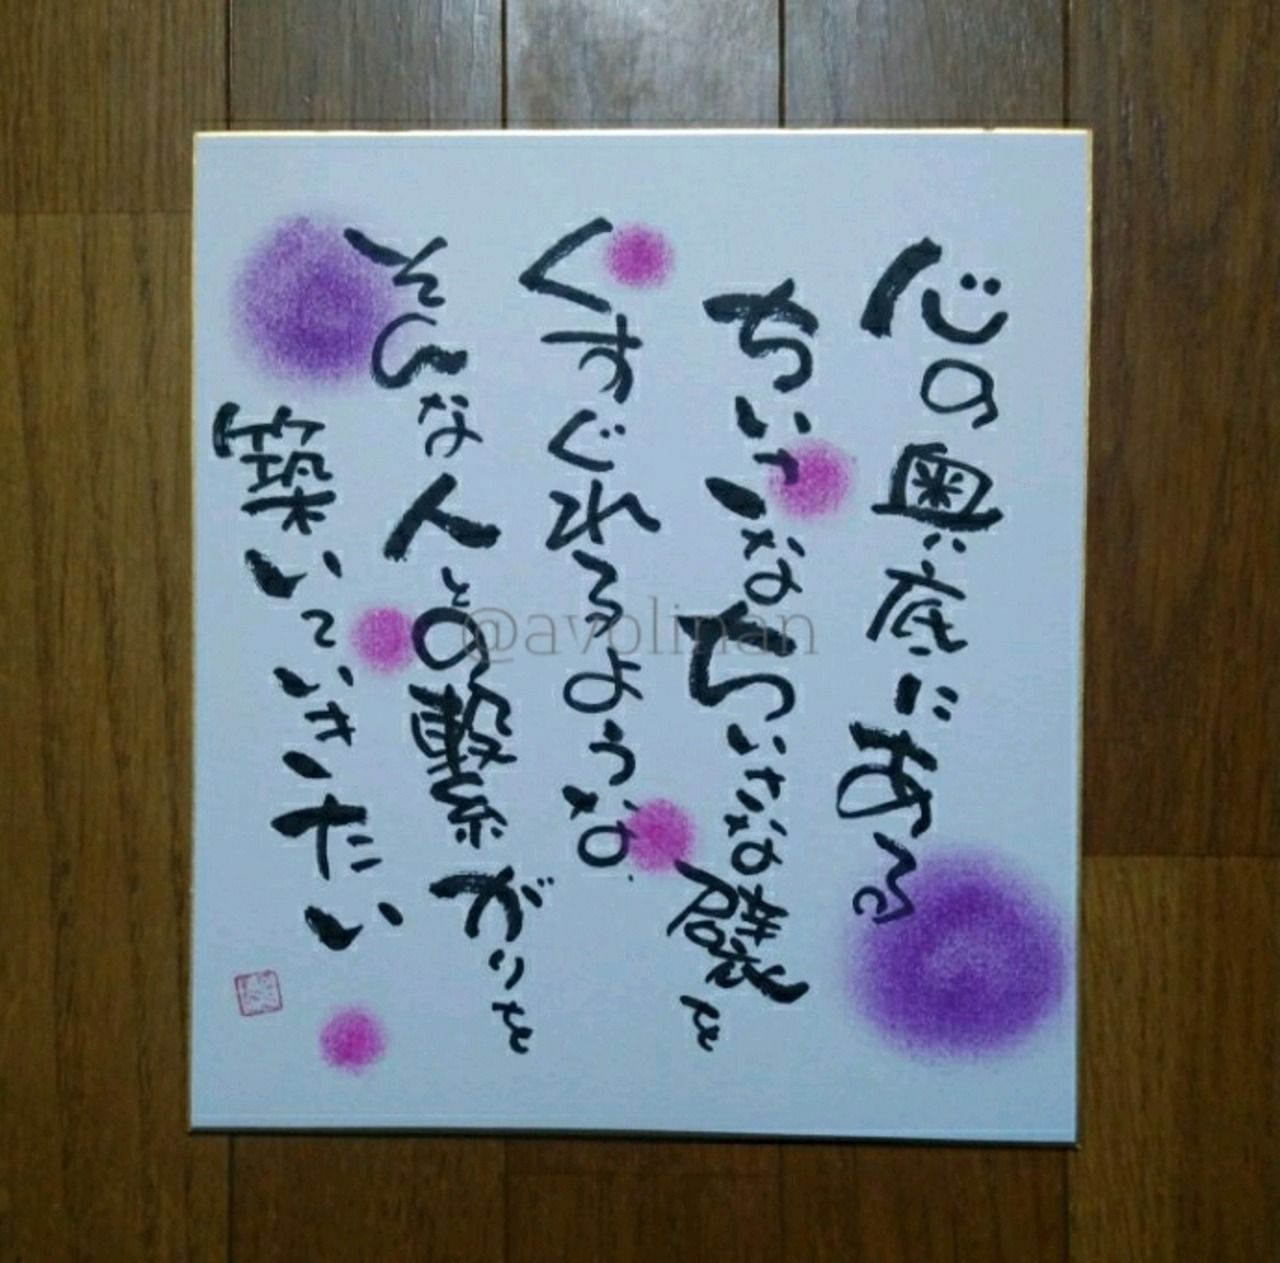 心の奥底にある
ちいさなちいさな襞を
くすぐれるような
そんな人との繋がりを
築いていきたい
@avolinan